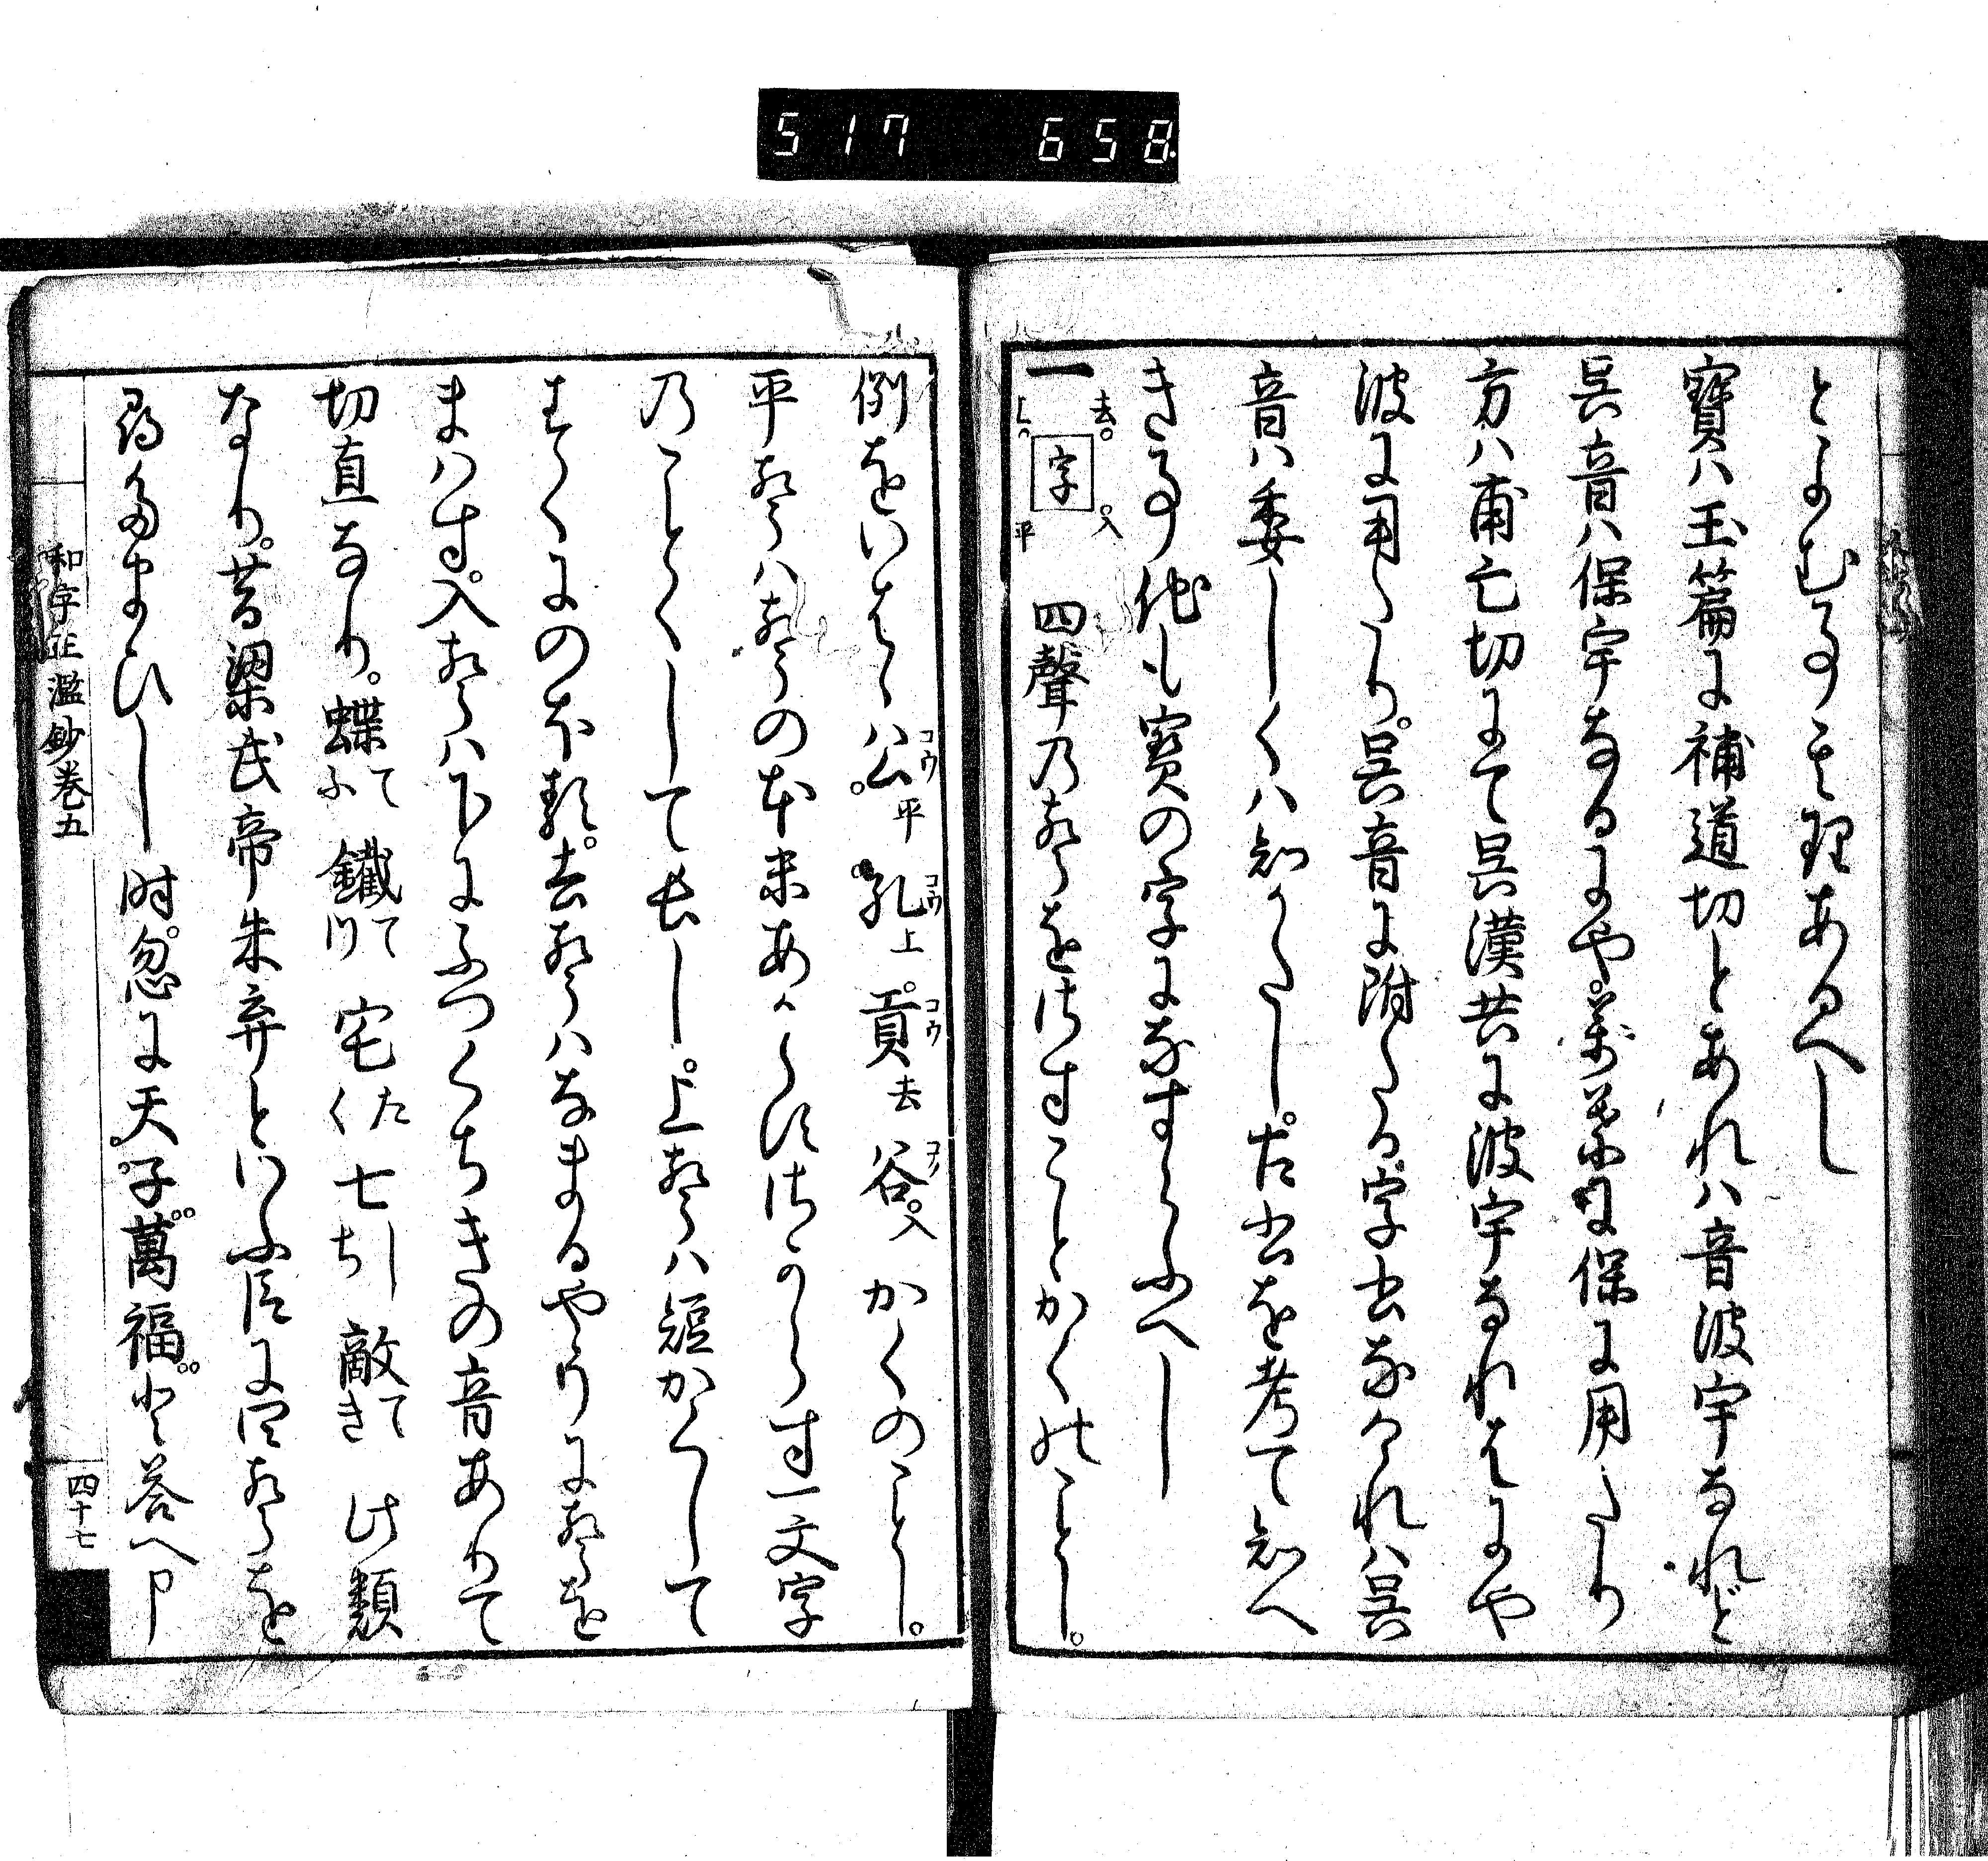 517 658
とよむる理あるへし
寶ハ玉篇に補道切とあれハ音波宇なれど
呉音ハ保宇なるにや萬葉にも保に用たり
方ハ甫亡切にて呉漢共に波宇なれはにや
波に用たり。呉音に附たる字書なけれハ呉
音ハ委しくハ知かたし。古書を考て知へ
きる他も寶の字になすらふへし
一 去 字 入 上 平 四聲乃聲をさすことかくのことし。
例をいはゝ公コウ平 孔コウ上 貢コウ去 谷コク入 かくのことし。
平聲ハ聲の本末あからすさからす一文字
乃ことくして長し。上聲ハ短かくして
すくにのほる。去聲ハなまるやうに聲を
まハす。入聲ハ下にふつくちきの音ありて
切直なり。蝶てふ 鐵てつ 宅たく 七しち 敵てき 此類
なり。昔梁武帝朱异といふ臣に四聲を
尋たまひし時。忽に天子萬福と答へ申
和字正濫鈔巻五
四十七